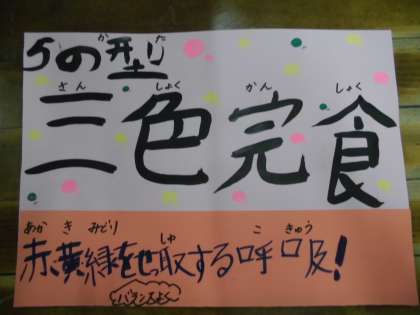 かた
5の型
さん しょく かん しょく
三色完食
あか き みどり しゅ こ きゅう
赤黄緑をせっ取する呼吸!
バランスよく